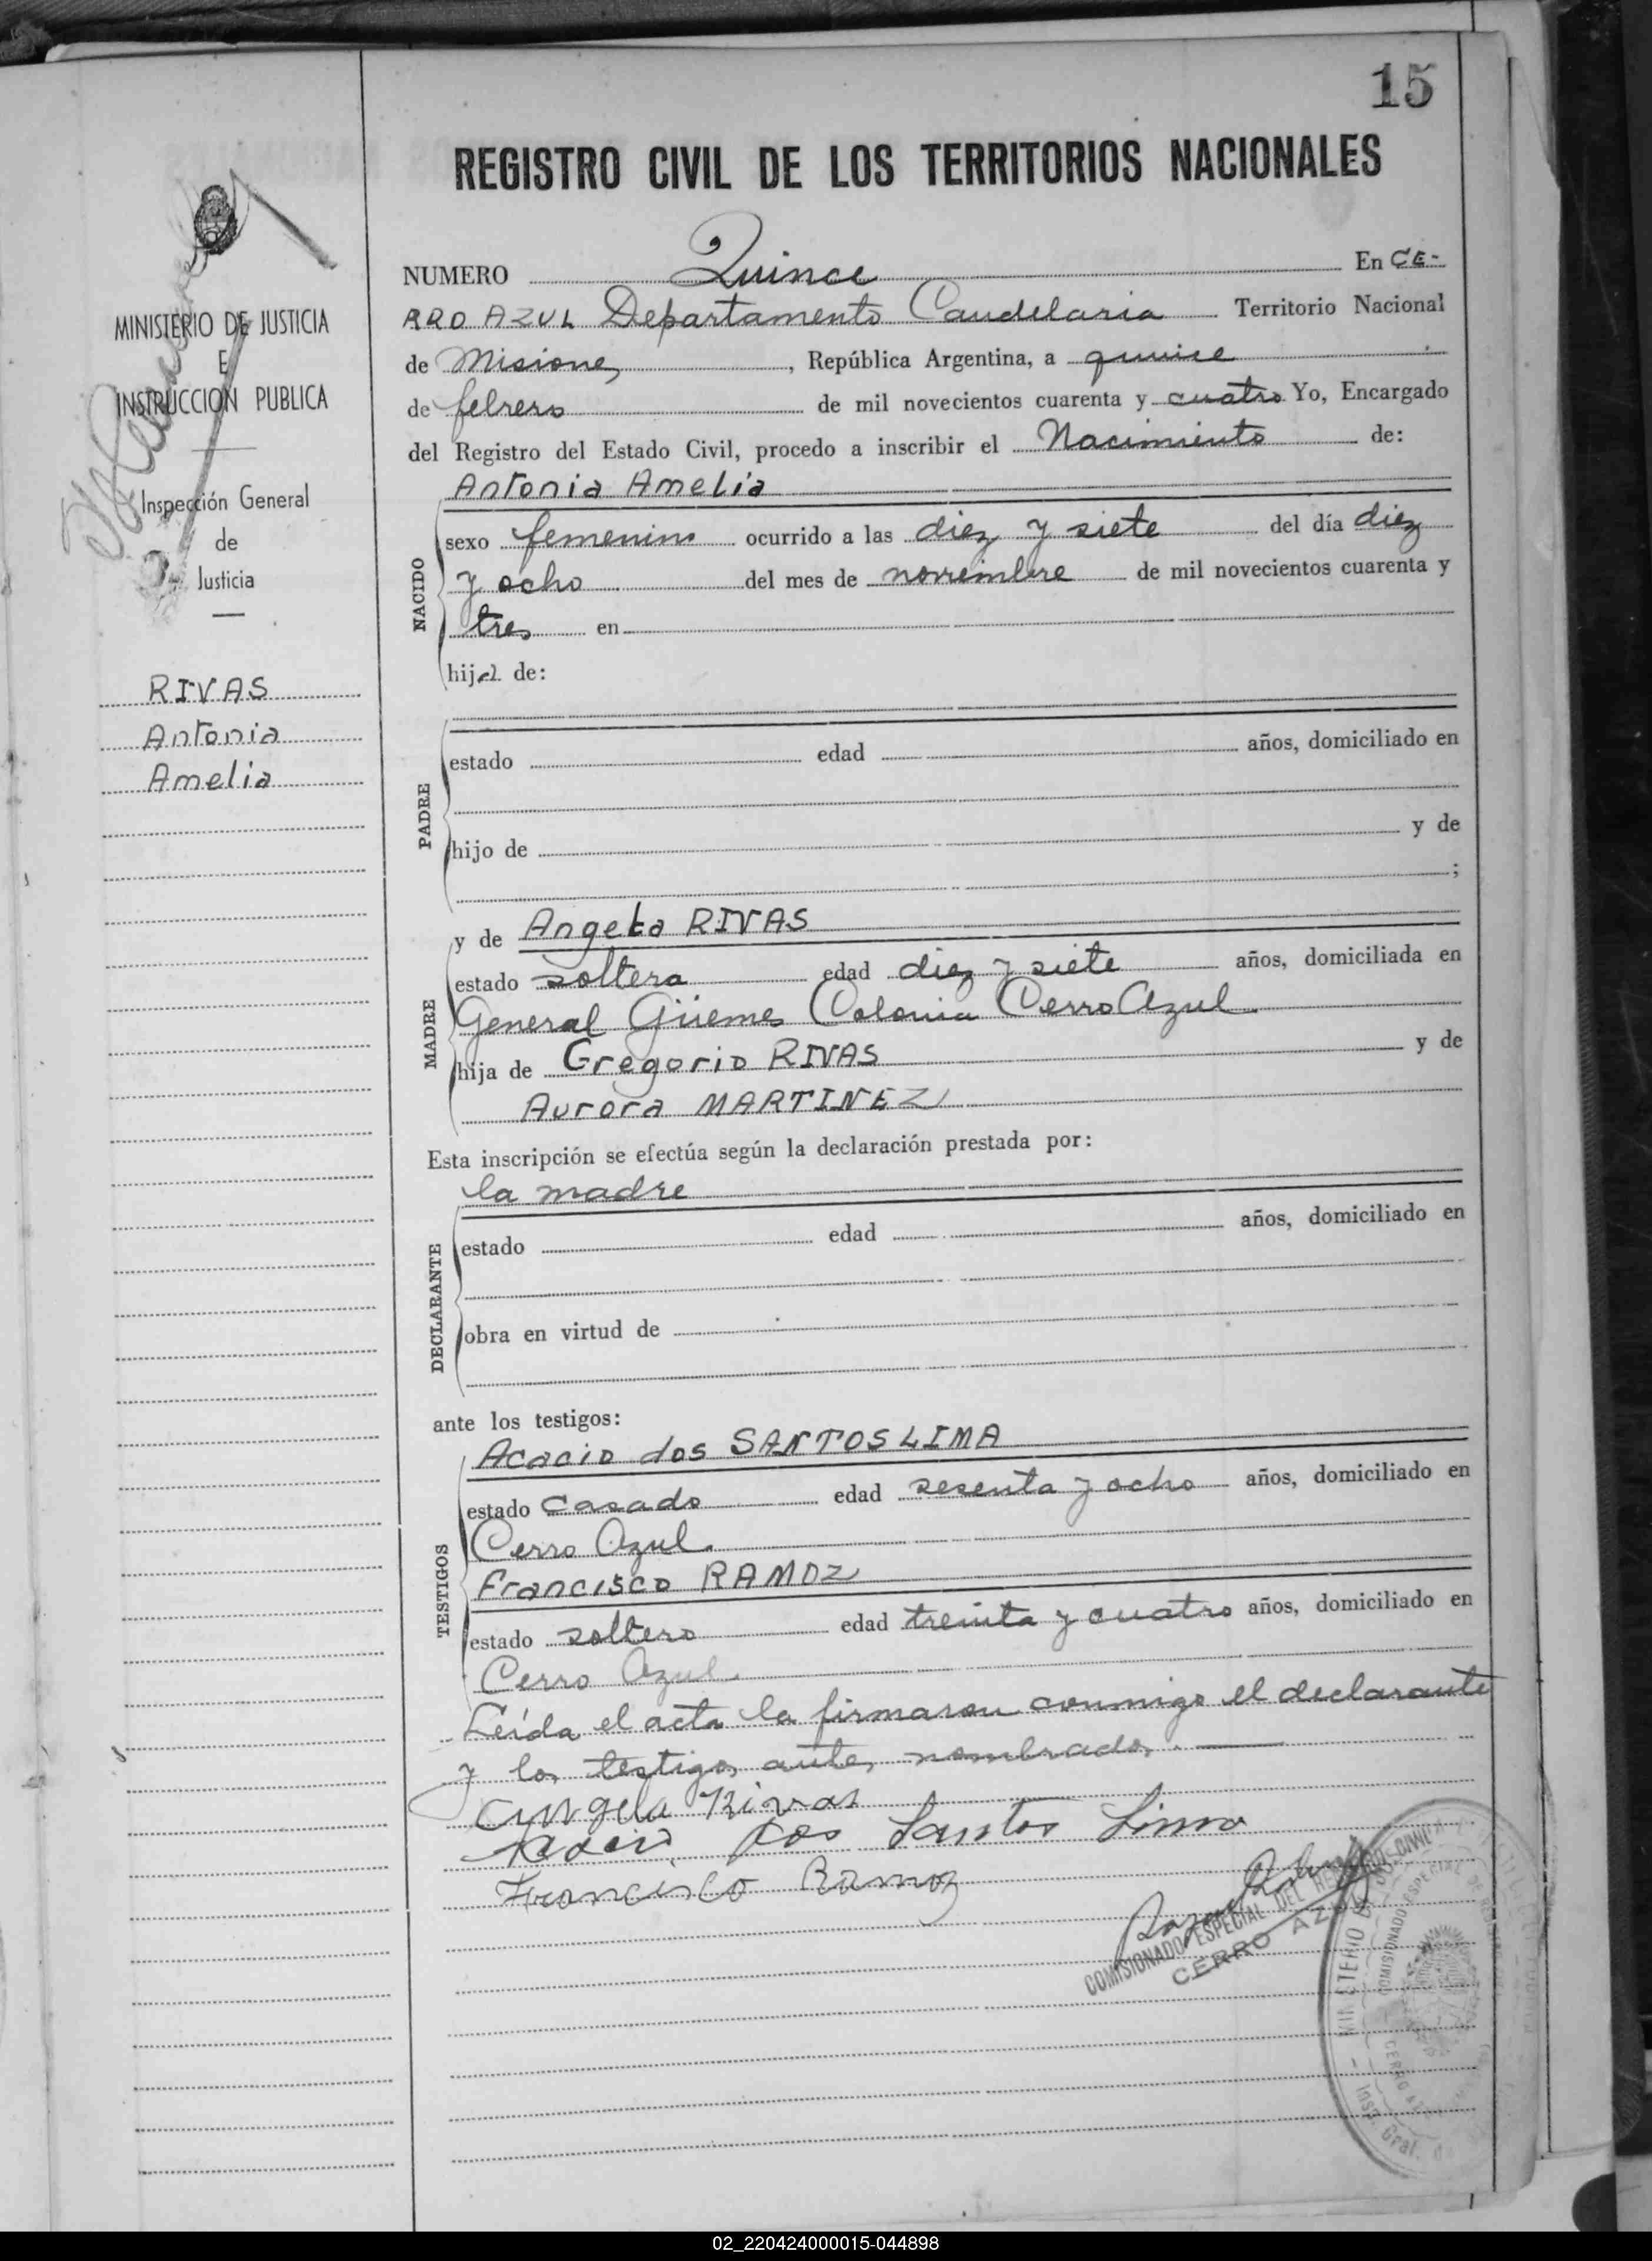 15
REGISTRO CIVIL DE LOS TERRITORIOS NACIONALES
NUMERO Quince En CE-
RRO AZUL Departamento Candelaria Territorio Nacional
de Misiones, República Argentina, a quince
de febrero de mil novecientos cuarenta y cuatro Yo, Encargado
del Registro del Estado Civil, procedo a inscribir el Nacimiento de:
Antonia Amelia
NACIDO
sexo femenino ocurrido a las diez y siete del día diez
y ocho del mes de noviembre de mil novecientos cuarenta y
tres en
hija de:
PADRE
estado edad años, domiciliado en
hijo de y de
;
MADRE
y de Angela RIVAS
estado soltera edad diez y siete años, domiciliada en
General Güemes Colonia Cerro Azul
hija de Gregorio RIVAS y de
Aurora MARTINEZ
Esta inscripción se efectúa según la declaración prestada por:
la madre
DECLARANTE
estado edad años, domiciliado en
obra en virtud de
ante los testigos:
TESTIGOS
Acacio dos SANTOS LIMA
estado casado edad sesenta y ocho años, domiciliado en
Cerro Azul.
Francisco RAMOZ
estado soltero edad treinta y cuatro años, domiciliado en
Cerro Azul.
Leída el acta la firmaron conmigo el declarante
y los testigos antes nombrados.
Angela Rivas
Acacio dos Santos Lima
Francisco Ramoz
COMISIONADO ESPECIAL DEL REGISTRO CIVIL
CERRO AZUL
MINISTERIO DE
COMISIONADO ESPECIAL DE
CERRO AZUL
Insp. Gral. d
MINISTERIO DE JUSTICIA
E
INSTRUCCION PUBLICA
Inspección General
de
Justicia
RIVAS
Antonia
Amelia
02_220424000015-044898